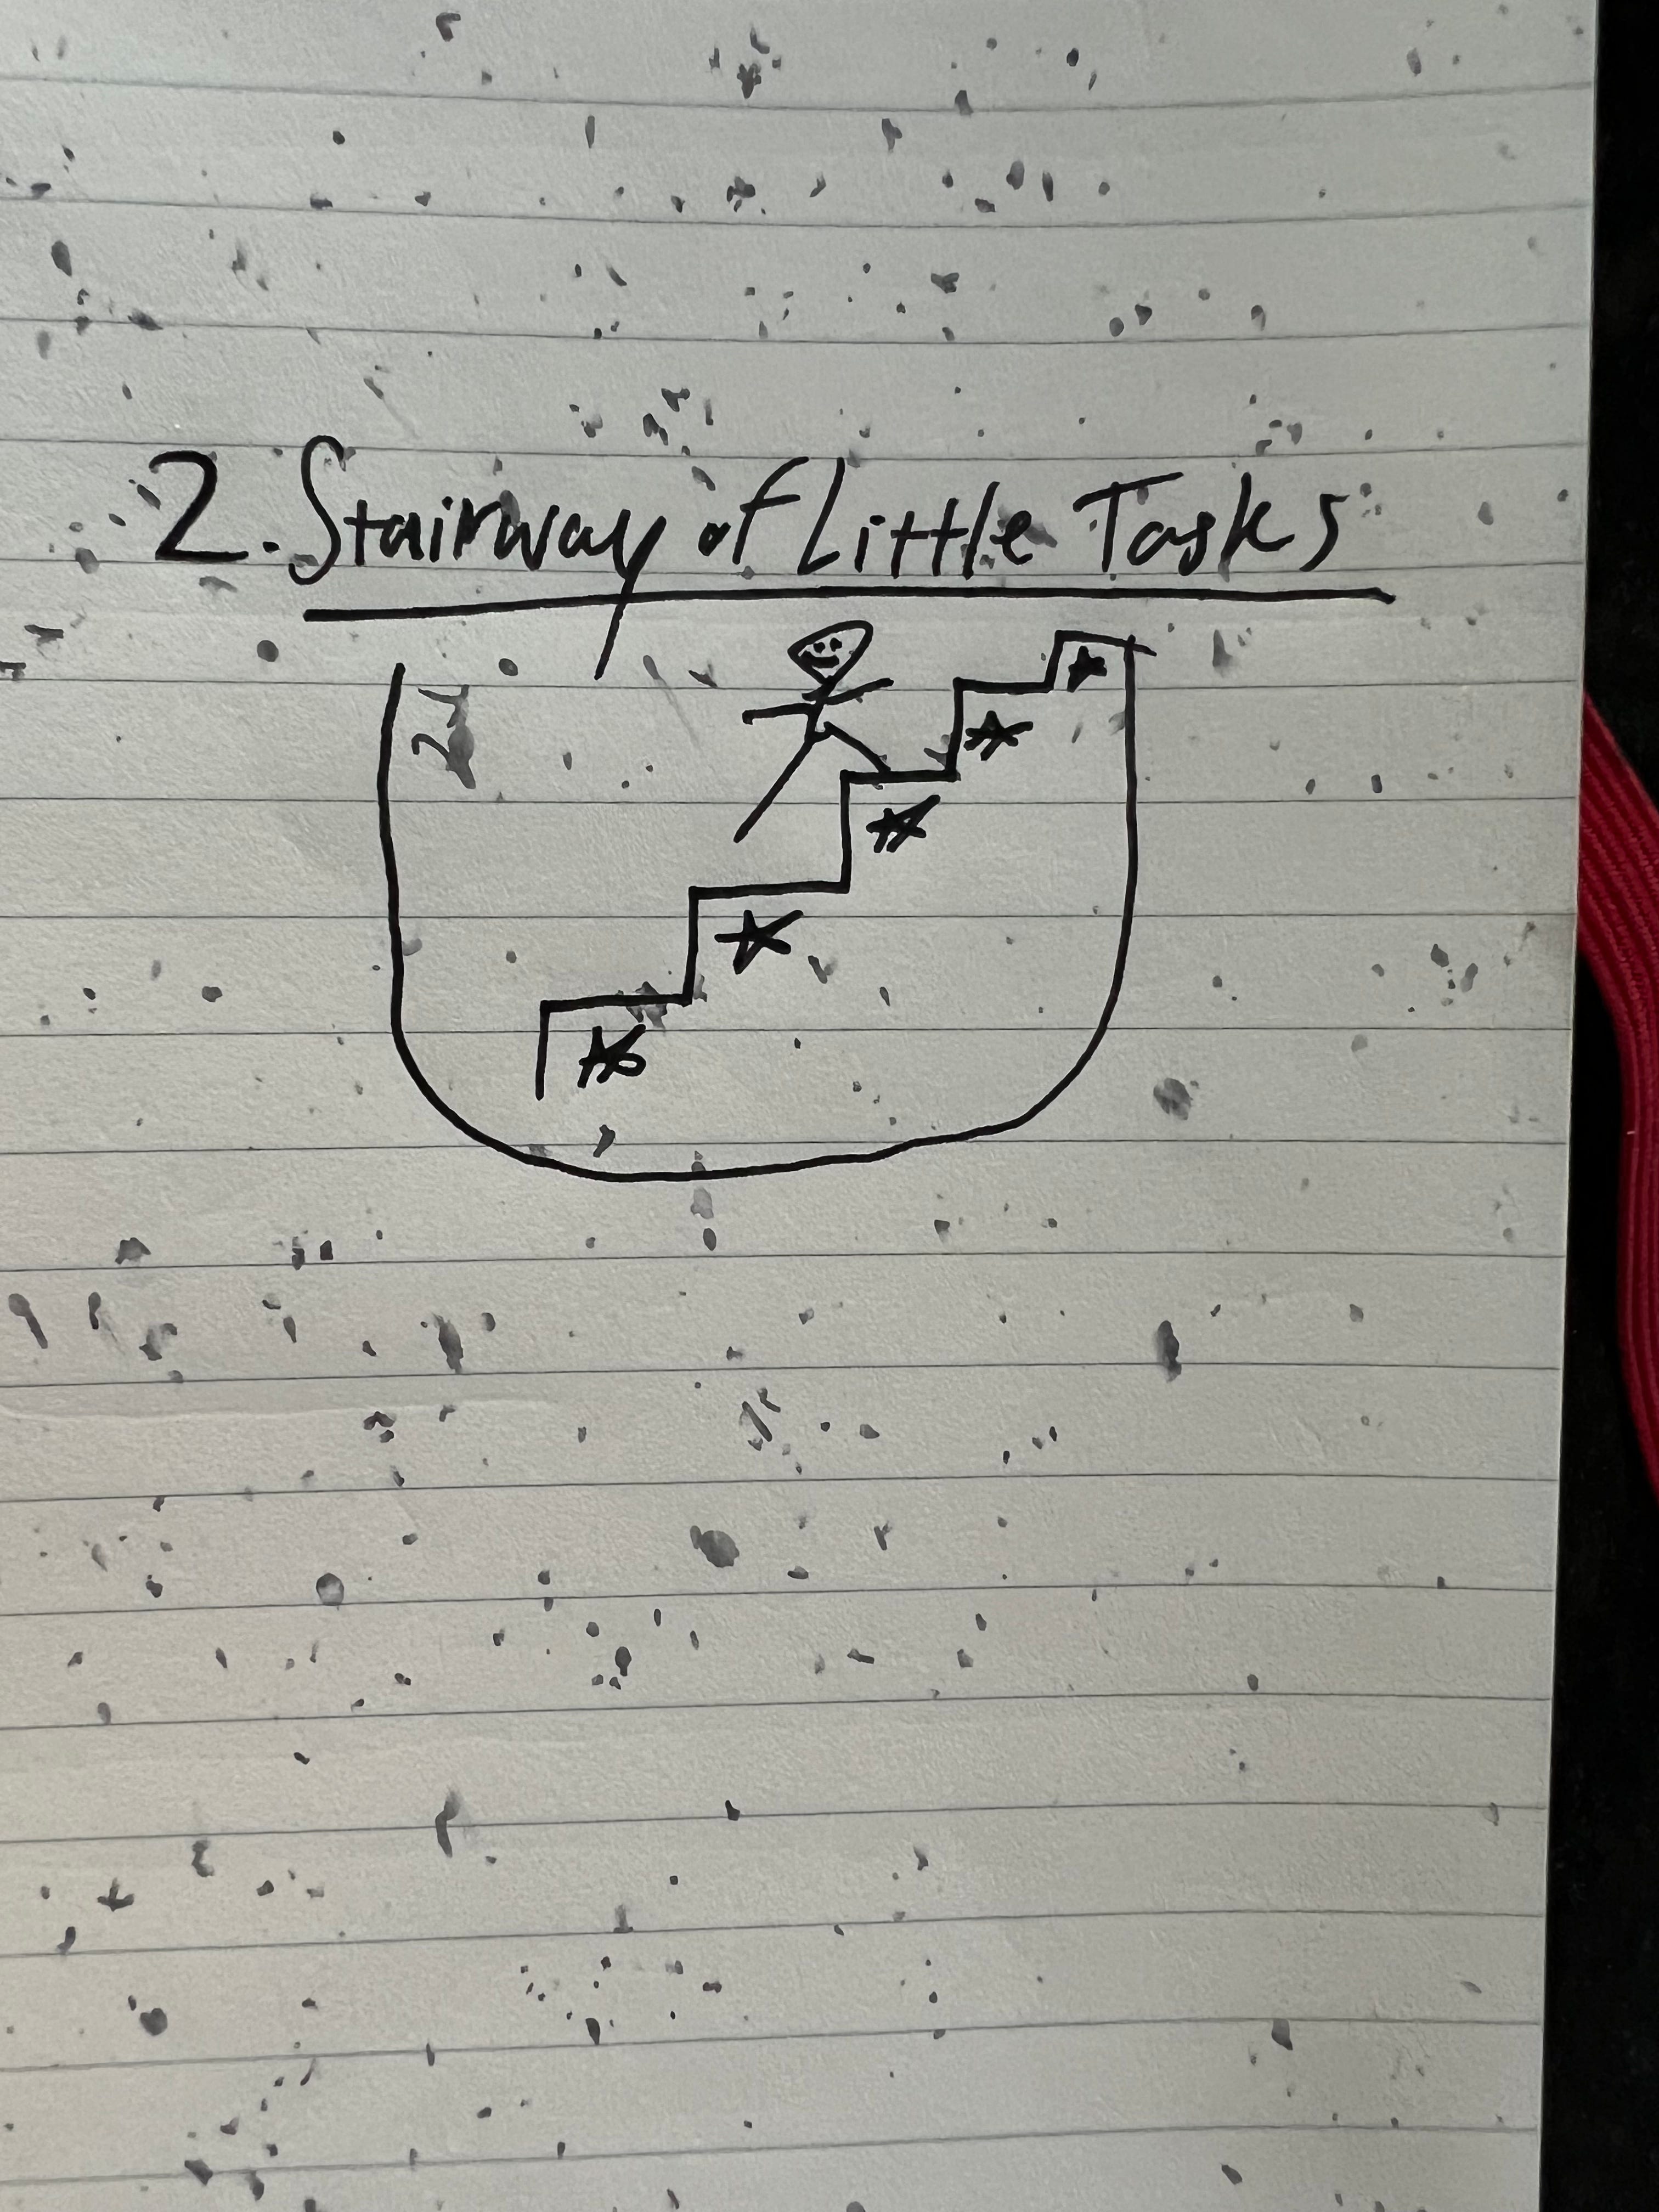 2. Stairway of Little Tasks